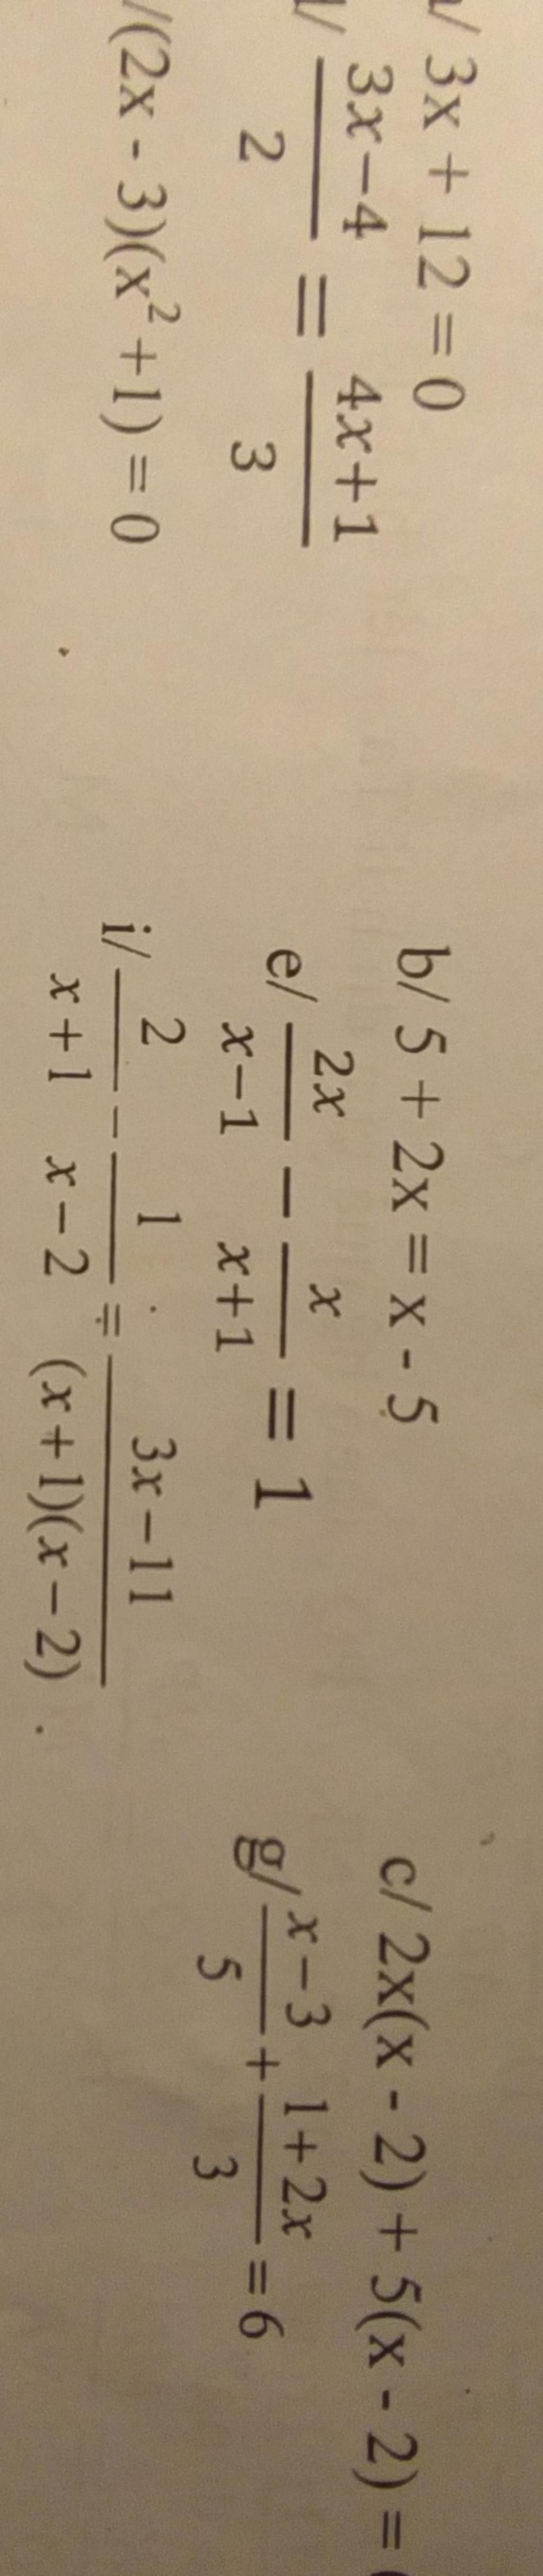 / 3x + 12 = 0 b/ 5 + 2x = x - 5 c/ 2x(x - 2) + 5(x - 2) =
/ (3x−4)/2 = (4x+1)/3 e/ 2x/(x−1) − x/(x+1) = 1 g/ (x−3)/5 + (1+2x)/3 = 6
/(2x - 3)(x² +1) = 0 i/ 2/(x+1) − 1/(x−2) = (3x−11)/((x+1)(x−2)) .